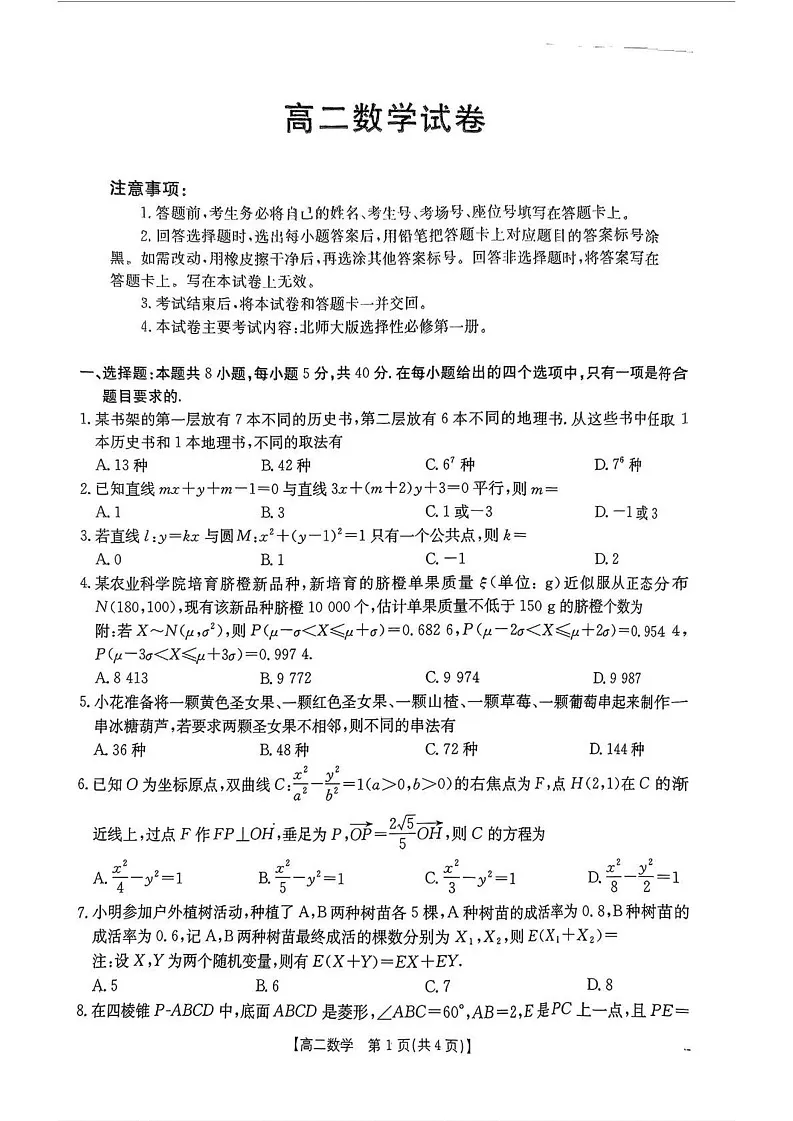 高二数学试卷
注意事项:
1.答题前,考生务必将自己的姓名、考生号、考场号、座位号填写在答题卡上。
2.回答选择题时,选出每小题答案后,用铅笔把答题卡上对应题目的答案标号涂
黑。如需改动,用橡皮擦干净后,再选涂其他答案标号。回答非选择题时,将答案写在
答题卡上。写在本试卷上无效。
3.考试结束后,将本试卷和答题卡一并交回。
4.本试卷主要考试内容:北师大版选择性必修第一册。
一、选择题:本题共8小题,每小题5分,共40分.在每小题给出的四个选项中,只有一项是符合
题目要求的.
1.某书架的第一层放有7本不同的历史书,第二层放有6本不同的地理书.从这些书中任取1
本历史书和1本地理书,不同的取法有
A.13种 B.42种 C.6⁷种 D.7⁶种
2.已知直线mx+y+m-1=0与直线3x+(m+2)y+3=0平行,则m=
A.1 B.3 C.1或-3 D.-1或3
3.若直线l:y=kx与圆M:x²+(y-1)²=1只有一个公共点,则k=
A.0 B.1 C.-1 D.2
4.某农业科学院培育脐橙新品种,新培育的脐橙单果质量ξ(单位:g)近似服从正态分布
N(180,100),现有该新品种脐橙10 000个,估计单果质量不低于150 g的脐橙个数为
附:若X~N(μ,σ²),则P(μ-σ<X≤μ+σ)=0.682 6,P(μ-2σ<X≤μ+2σ)=0.954 4,
P(μ-3σ<X≤μ+3σ)=0.997 4.
A.8 413 B.9 772 C.9 974 D.9 987
5.小花准备将一颗黄色圣女果、一颗红色圣女果、一颗山楂、一颗草莓、一颗葡萄串起来制作一
串冰糖葫芦,若要求两颗圣女果不相邻,则不同的串法有
A.36种 B.48种 C.72种 D.144种
6.已知O为坐标原点,双曲线C:x²/a²-y²/b²=1(a>0,b>0)的右焦点为F,点H(2,1)在C的渐
近线上,过点F作FP⊥OH,垂足为P,OP→=2√5/5 OH→,则C的方程为
A.x²/4-y²=1 B.x²/5-y²=1 C.x²/3-y²=1 D.x²/8-y²/2=1
7.小明参加户外植树活动,种植了A,B两种树苗各5棵,A种树苗的成活率为0.8,B种树苗的
成活率为0.6,记A,B两种树苗最终成活的棵数分别为X₁,X₂,则E(X₁+X₂)=
注:设X,Y为两个随机变量,则有E(X+Y)=EX+EY.
A.5 B.6 C.7 D.8
8.在四棱锥P-ABCD中,底面ABCD是菱形,∠ABC=60°,AB=2,E是PC上一点,且PE=
【高二数学 第1页(共4页)】